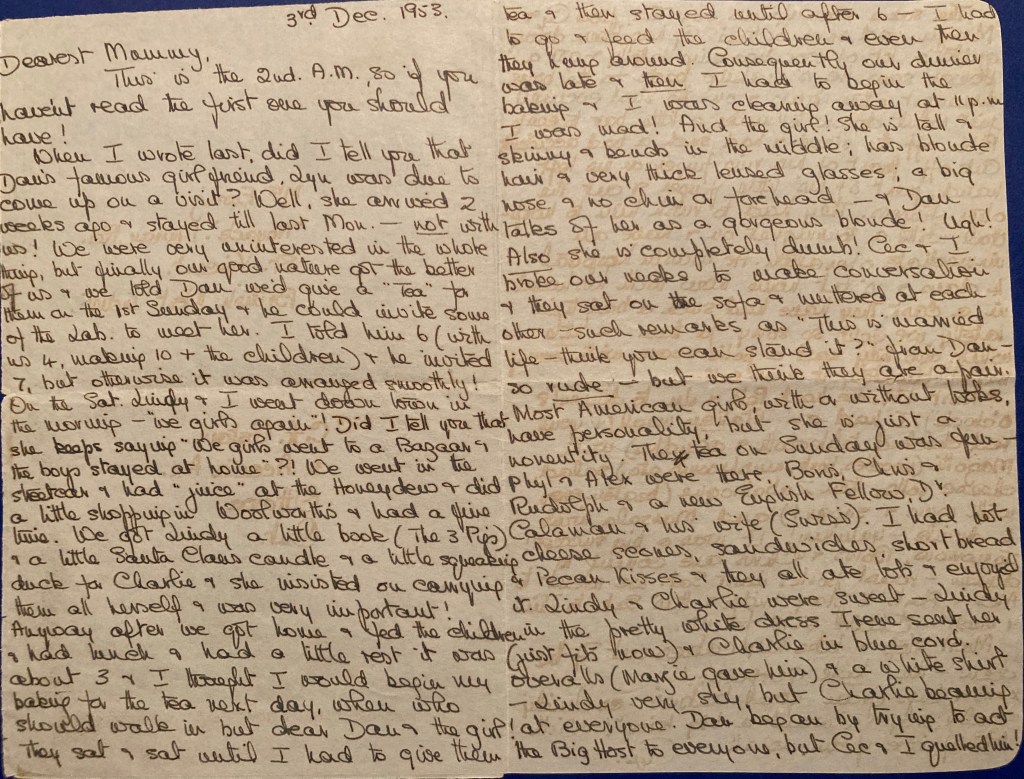 3rd Dec. 1953.
Dearest Mommy,
This is the 2nd. A.M. so if you
haven't read the first one you should
have!
When I wrote last, did I tell you that
Dan's famous girlfriend, Lyn was due to
come up on a visit? Well, she arrived 2
weeks ago & stayed till last Mon. — not with
us! We were very uninterested in the whole
thing, but finally our good nature got the better
of us & we told Dan we'd give a "Tea" for
them on the 1st Sunday & he could invite some
of the Lab. to meet her. I told him 6 (with
us 4, making 10 + the children) & he invited
7, but otherwise it was arranged smoothly!
On the Sat. Lindy & I went down town in
the morning — "we girls again"! Did I tell you that
she keeps saying "We girls went to a Bazaar &
the boys stayed at home"?! We went in the
streetcar & had "juice" at the Honeydew & did
a little shopping in Woolworths & had a fine
time. We got Lindy a little book (The 3 Pigs)
& a little Santa Claus candle & a little squeaking
duck for Charlie & she insisted on carrying
them all herself & was very important!
Anyway after we got home & fed the children
& had lunch & had a little rest it was
about 3 & I thought I would begin my
baking for the tea next day, when who
should walk in but dear Dan & the girl!
They sat & sat until I had to give them
tea & then stayed until after 6 — I had
to go & feed the children & even then
they hung around. Consequently our dinner
was late & then I had to begin the
baking & I was cleaning away at 11 p.m.
I was mad! And the girl! She is tall &
skinny & bends in the middle; has blonde
hair & very thick lensed glasses; a big
nose & no chin or forehead — & Dan
talks of her as a gorgeous blonde! Ugh!
Also she is completely dumb! Cec & I
broke our necks to make conversation
& they sat on the sofa & muttered at each
other — such remarks as "This is married
life — think you can stand it?" from Dan —
so rude — but we think they are a pair.
Most American girls, with or without looks,
have personality, but she is just a
nonentity. The tea on Sunday was fun —
Phyl & Alex were there, Boris, Chris &
Rudolph & a new English Fellow, Dr.
Calaman & his wife (Swiss). I had hot
cheese scones, sandwiches, shortbread
& Pecan Kisses & they all ate lots & enjoyed
it. Lindy & Charlie were sweet — Lindy
in the pretty white dress Irene sent her
(just fits now) & Charlie in blue cord.
overalls (Margie gave him) & a white shirt
— Lindy very shy but Charlie beaming
at everyone. Dan began by trying to act
the Big Host to everyone, but Cec & I quelled him!